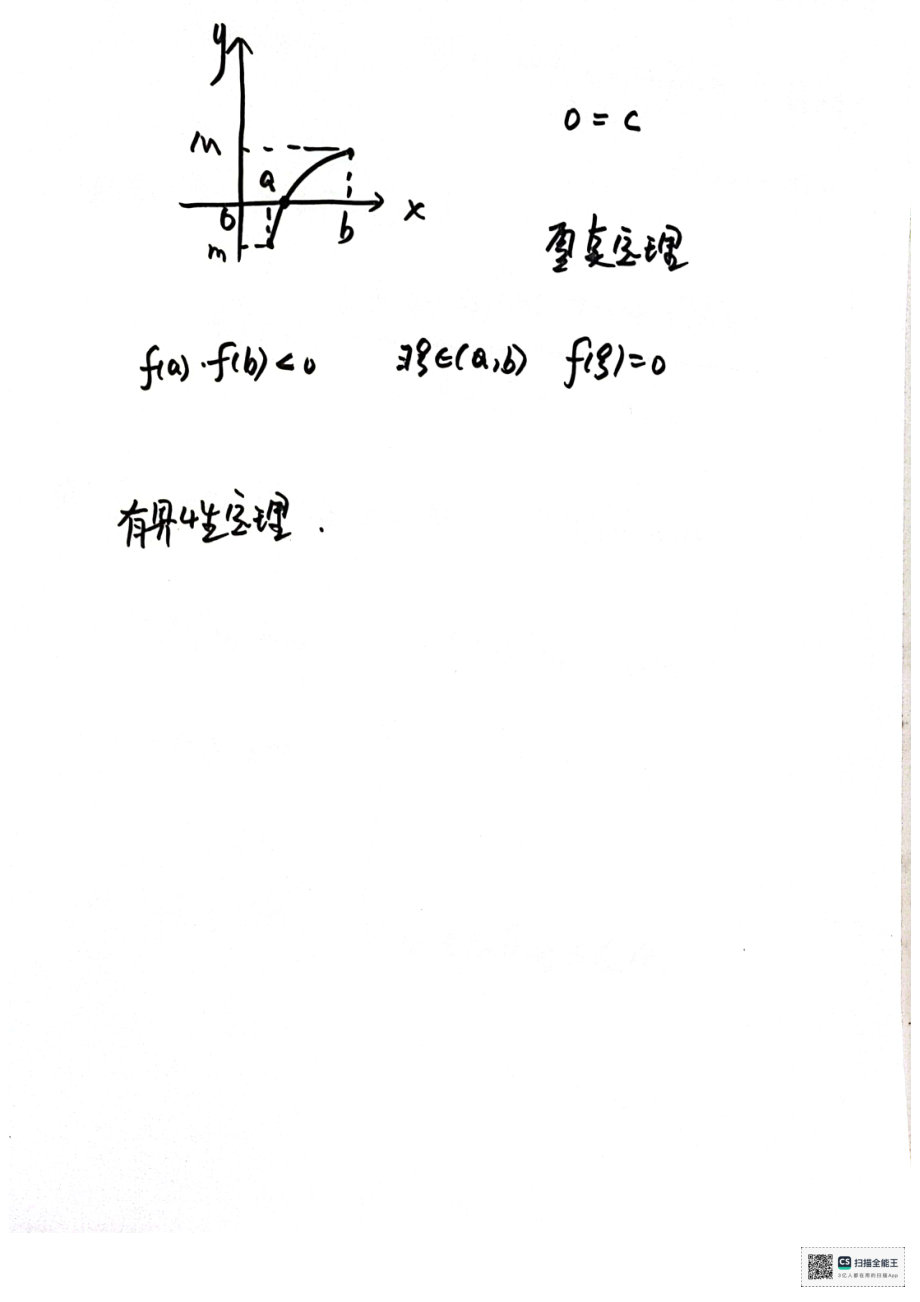 y
0 = c
M
a
0
b
x
m
零点定理
f(a)·f(b)<0 ∃ξ∈(a,b) f(ξ)=0
有界性定理.
CS 扫描全能王
3亿人都在用的扫描App